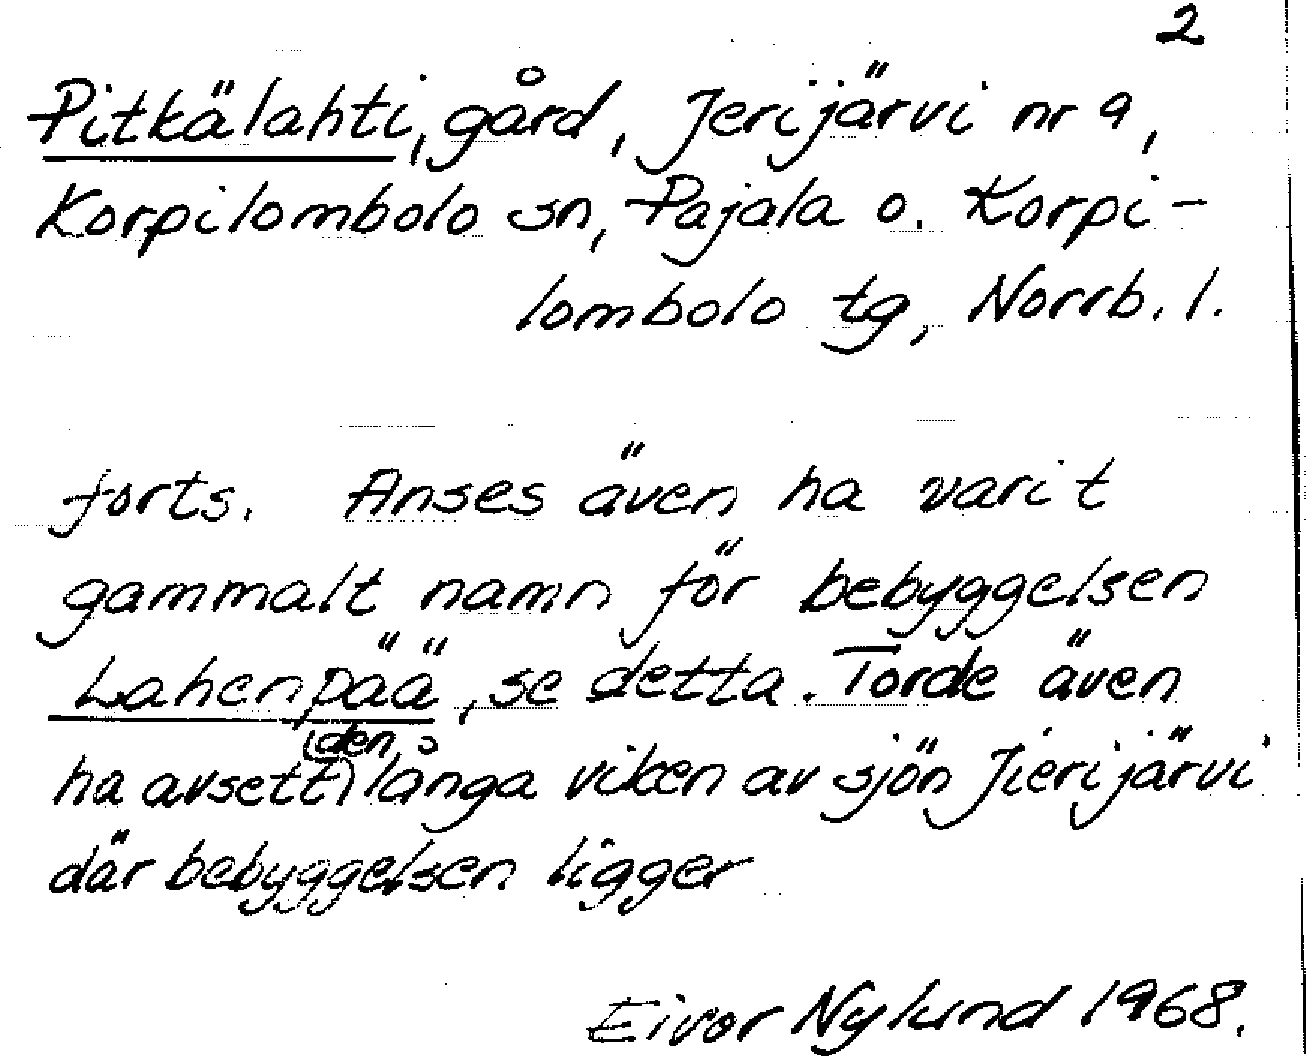 2
Pitkälahti, gård, Jerijärvi nr 9,
Korpilombolo sn, Pajala o. Korpi-
lombolo tg, Norrb. l.
forts. Anses även ha varit
gammalt namn för bebyggelsen
Lahenpää, se detta. Torde även
ha avsett den långa viken av sjön Jierijärvi
där bebyggelsen ligger
Eivor Nylund 1968.